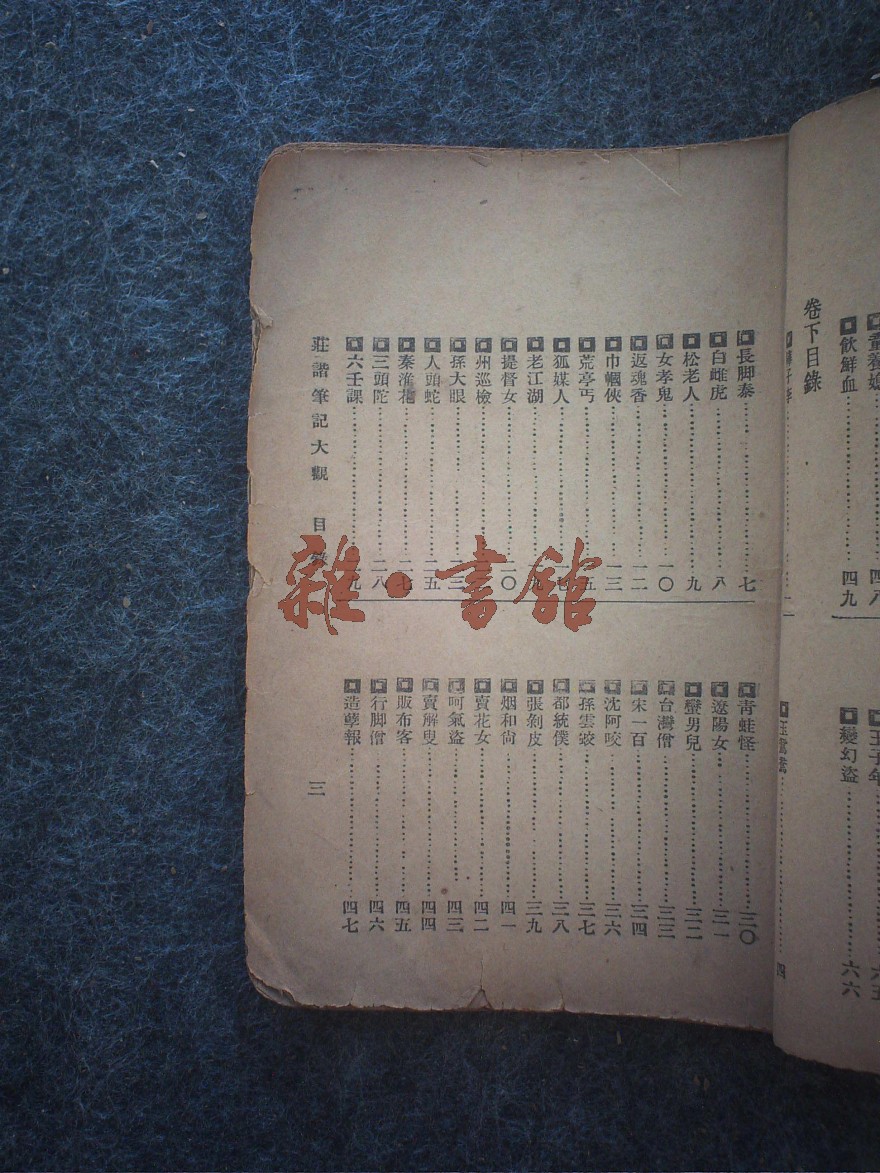 飲鮮血 四九
四八
變幻盜 六六
卷下目錄
長脚泰 七
白雌虎 八
松老人 九
女孝鬼 一〇
返魂香 一二
巾幗俠 一三
荒亭丐
狐媒人
老江湖
提督女
州巡檢
孫大眼
人頭蛇 二五
秦淮 二七
三頭陀 二八
六壬課
青蛙怪 三〇
遼陽女 三一
躄男兒 三二
台灣僧 三三
宋一百 三四
沈阿咬 三六
孫雲 三七
都統僕 三八
張剝皮 三九
烟和尙 四一
賣花女 四二
呵氣盜 四三
賣解叟 四四
販布客 四五
行脚僧 四六
造孽報 四七
莊諧筆記大觀 目錄 三
雜·書館